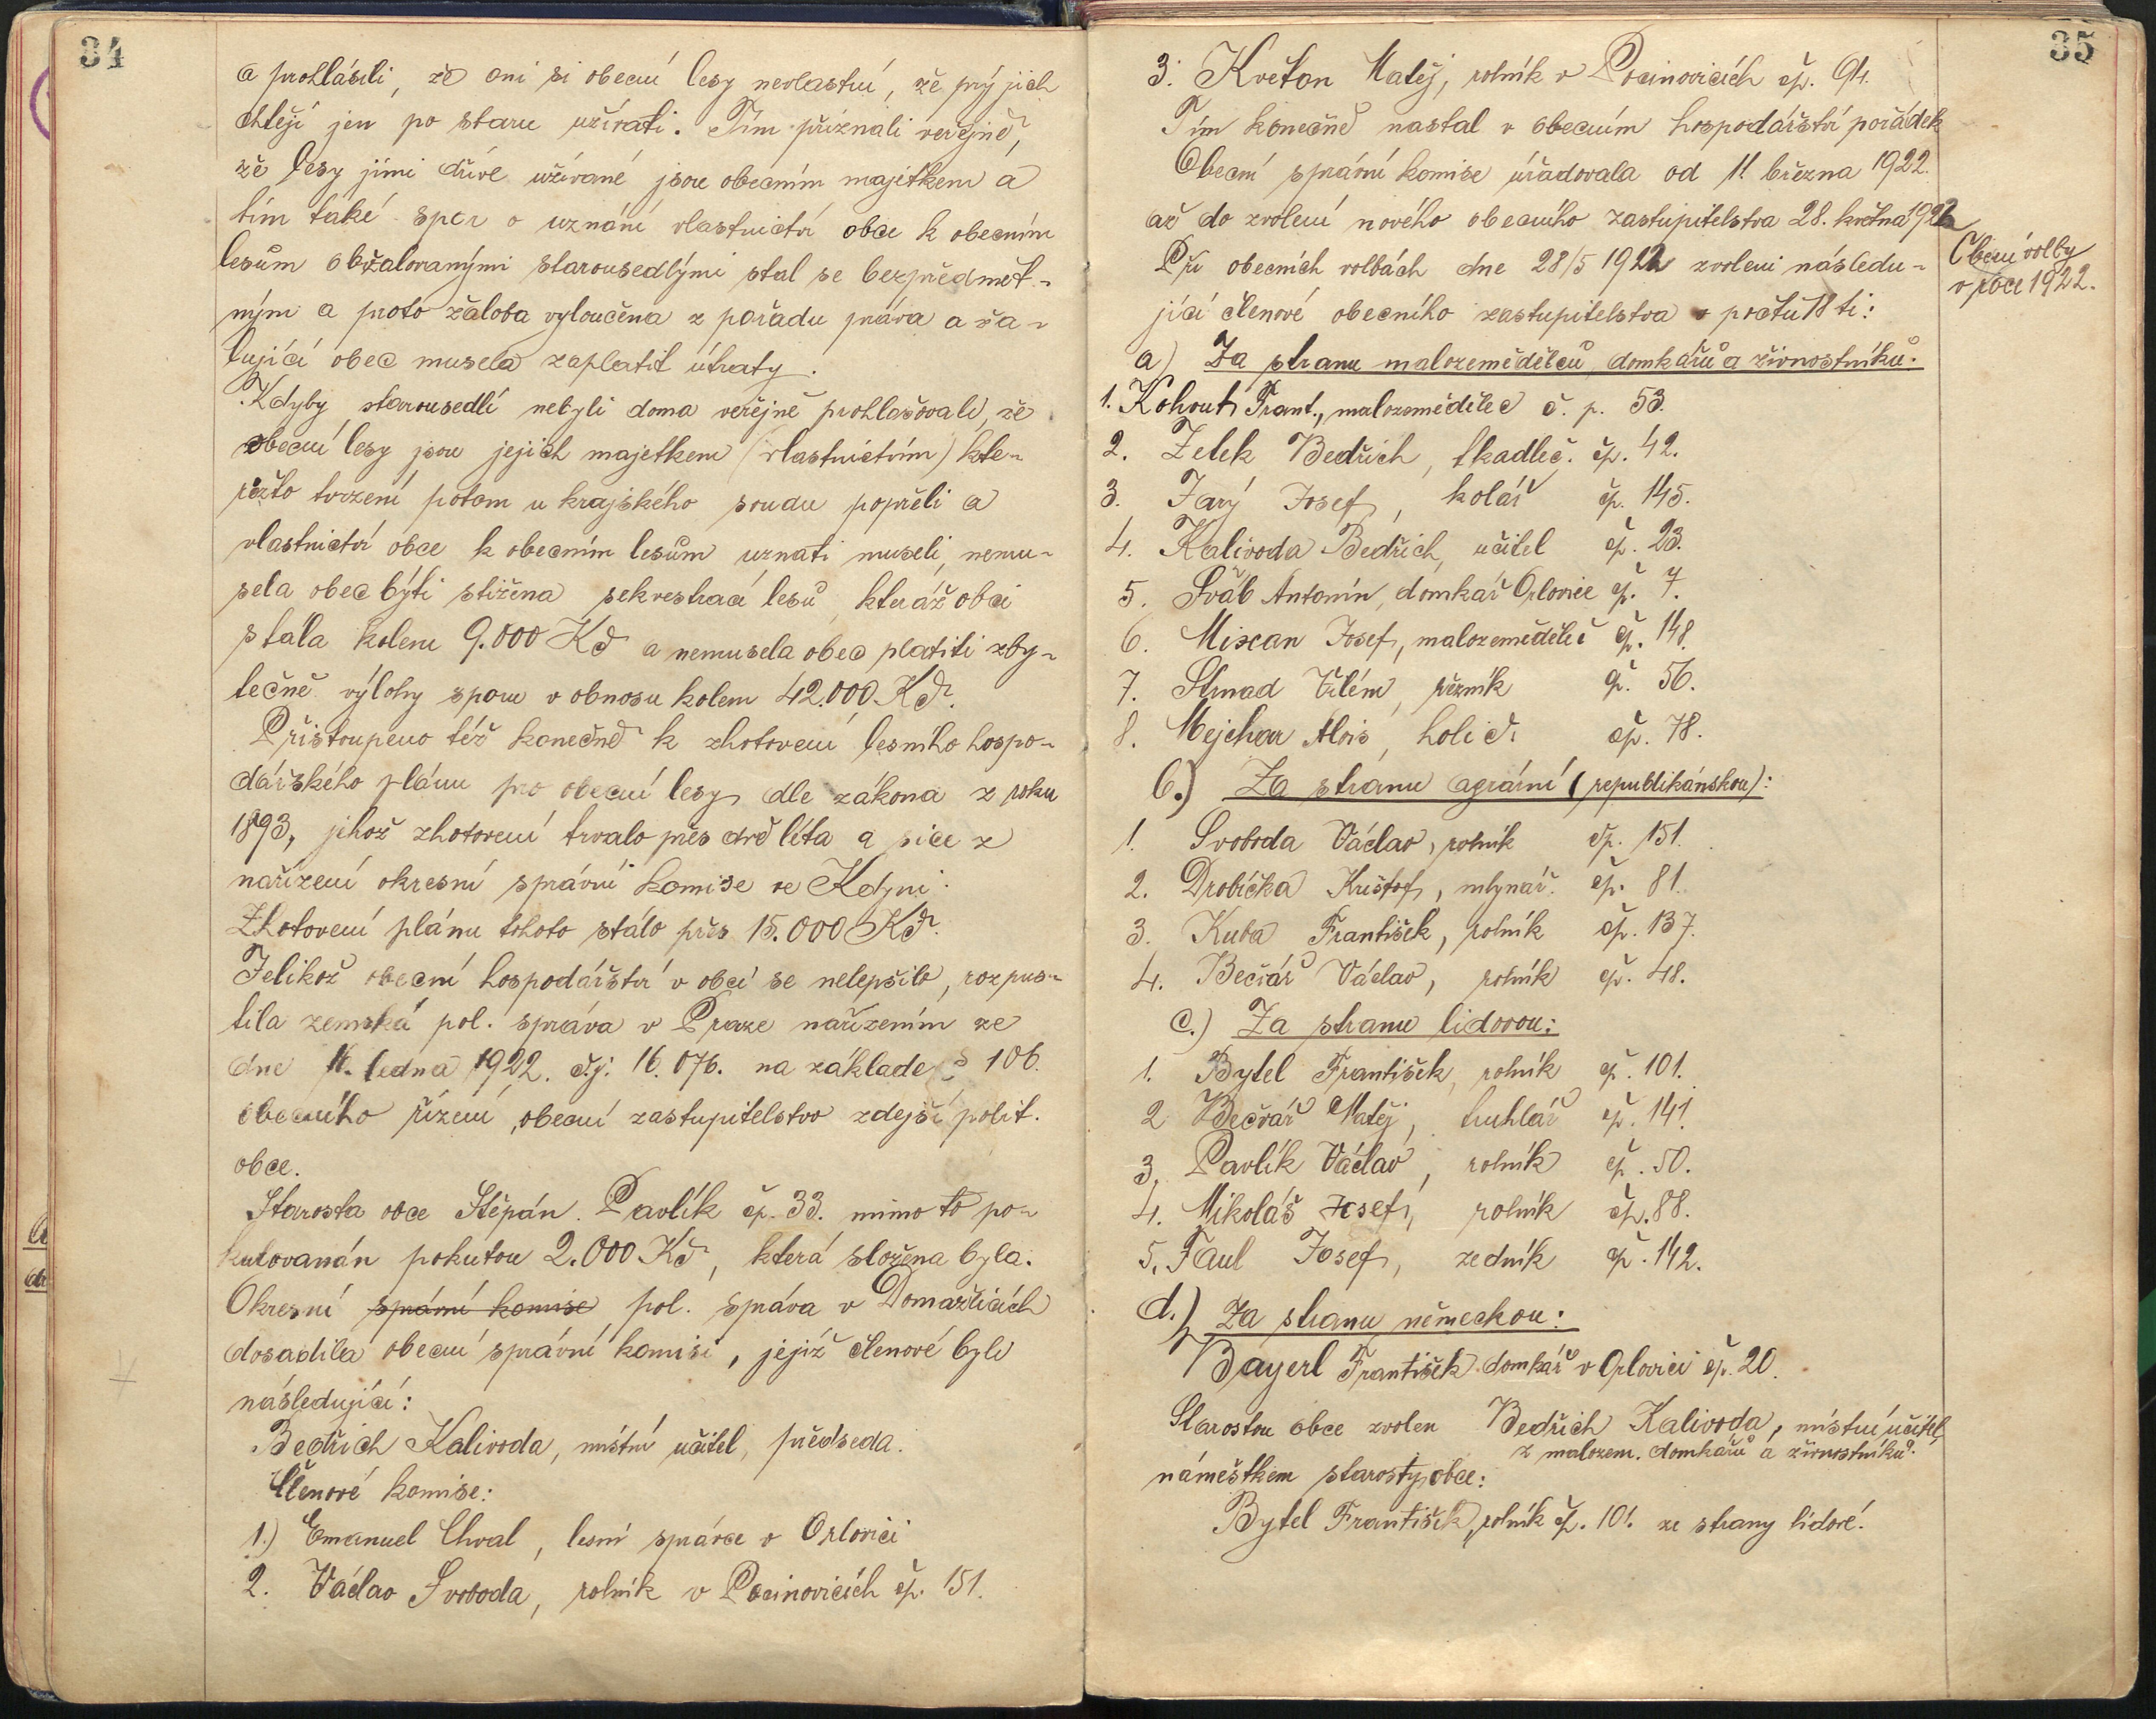 34
a prohlásili, že oni si obecní lesy nevlastní, že prý jich
chtějí jen po staru užívati. Tím přiznali veřejně,
že lesy jimi dříve užívané jsou obecním majetkem a
tím také spor o uznání vlastnictví obce k obecním
lesům obžalovanými starousedlými stal se bezpředmět-
ným a proto žaloba vyloučena z pořadu práva a ža-
lující obec musela zaplatit útraty.
Kdyby starousedlí nebyli doma veřejně prohlašovali, že
obecní lesy jsou jejich majetkem (vlastnictvím) kte-
réžto tvrzení potom u krajského soudu popřeli a
vlastnictví obce k obecním lesům uznati museli, nemu-
sela obec býti stižena sekvestrací lesů, kteráž obci
stála kolem 9.000 Kč a nemusela obec platiti zby-
tečně výlohy sporu v obnosu kolem 42.000 Kč.
Přistoupeno též konečně k zhotovení lesního hospo-
dářského plánu pro obecní lesy dle zákona z roku
1893, jehož zhotovení trvalo přes dvě léta a sice z
nařízení okresní správní komise ve Kdyni.
Zhotovení plánu tohoto stálo přes 15.000 Kč.
Jelikož obecní hospodářství v obci se nelepšilo, rozpus-
tila zemská pol. správa v Praze nařízením ze
dne 11. ledna 1922. č.j. 16.076. na základe § 106.
obecního řízení, obecní zastupitelstvo zdejší polit.
obce.
Starosta obce Štěpán Pavlík čp. 33. mimo to po-
kutovanán pokutou 2.000 Kč, která složena byla.
Okresní správní komise pol. správa v Domažlicích
dosadila obecní správní komisi, jejíž členové byli
následující:
Bedřich Kalivoda, místní učitel, předseda.
Členové komise:
1.) Emanuel Chval, lesní správce v Orlovici
2. Václav Svoboda, rolník v Pocinovicích čp. 151.
35
3. Květon Matěj, rolník v Pocinovicích čp. 94.
Tím konečně nastal v obecním hospodářství pořádek
Obecní správní komise úřadovala od 11. března 1922.
až do zvolení nového obecního zastupitelstva 28. května 1922
Obecní volby
v roce 1922.
Při obecních volbách dne 28/5 1922 zvoleni následu-
jící členové obecního zastupitelstva v počtu 18 ti:
a) Za stranu malozemědělců domkářů a živnostníků.
1. Kohout Frant., malozemědělec č. p. 53.
2. Zelek Bedřich, tkadlec. čp. 42.
3. Jarý Josef, kolář čp. 145.
4. Kalivoda Bedřich, učitel čp. 23.
5. Šváb Antonín, domkář Orlovice čp. 7.
6. Miscan Josef, malozemědělec čp. 148.
7. Strnad Vilém, řezník čp. 56.
8. Mejchar Alois, holič. čp. 78.
b.) Za stranu agrární (republikánskou):
1. Svoboda Václav, rolník čp. 151.
2. Drobička Krištof, mlynář. čp. 81.
3. Kuba František, rolník čp. 137.
4. Bečvář Václav, rolník čp. 48.
c.) Za stranu lidovou:
1. Bytel František, rolník čp. 101.
2 Bečvář Matěj, truhlář čp. 141.
3. Pavlík Václav, rolník čp. 50.
4. Mikoláš Josef, rolník čp. 88.
5. Faul Josef, zedník čp. 142.
d.) Za stranu německou:
Bayerl František domkář v Orlovici čp. 20.
Starostou obce zvolen Bedřich Kalivoda, místní učitel,
z malozem. domkářů a živnostníků.
náměstkem starosty obce:
Bytel František, rolník čp. 101. ze strany lidové.